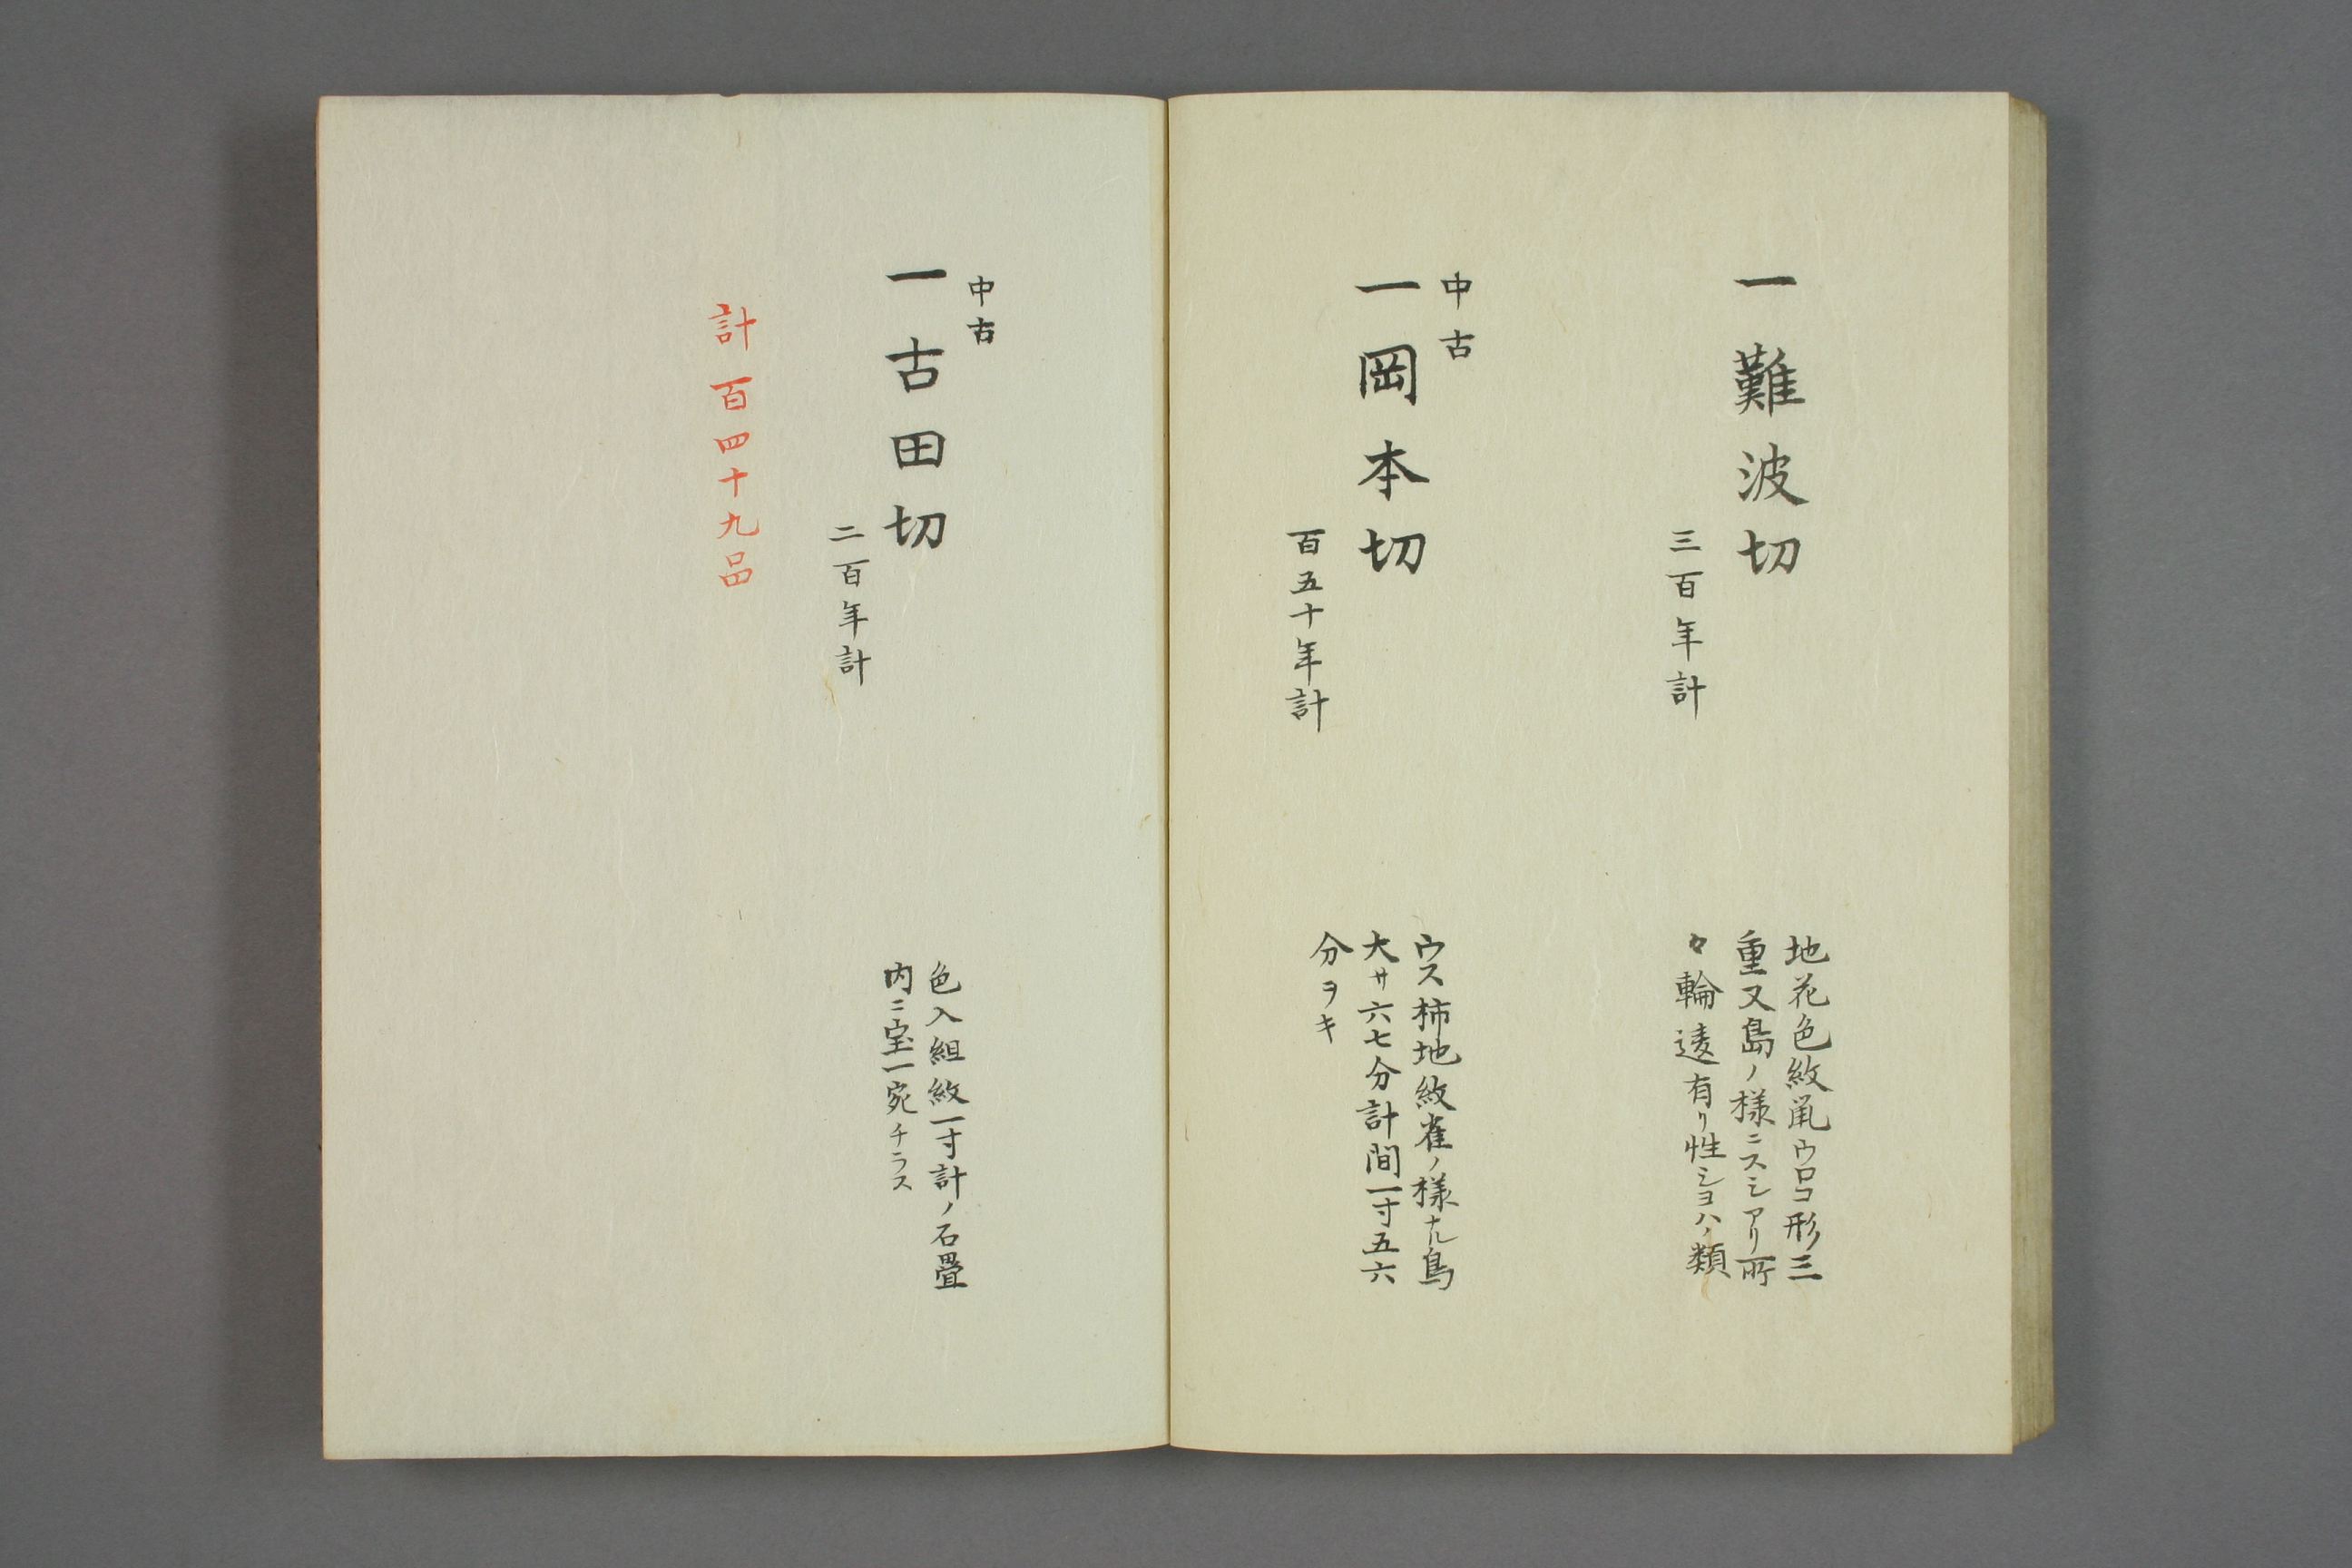 一難波切
三百年計
地花色紋黹ウロコ形三
重又島ノ様ニスシアリ所
々輪違有リ性シヨハノ類
中古
一岡本切
百五十年計
ウス柿地紋雀ノ様ナル鳥
大サ六七分計間一寸五六
分ヲキ
中古
一古田切
二百年計
色入組紋一寸計ノ石畳
内ニ宝一宛チラス
計百四十九品